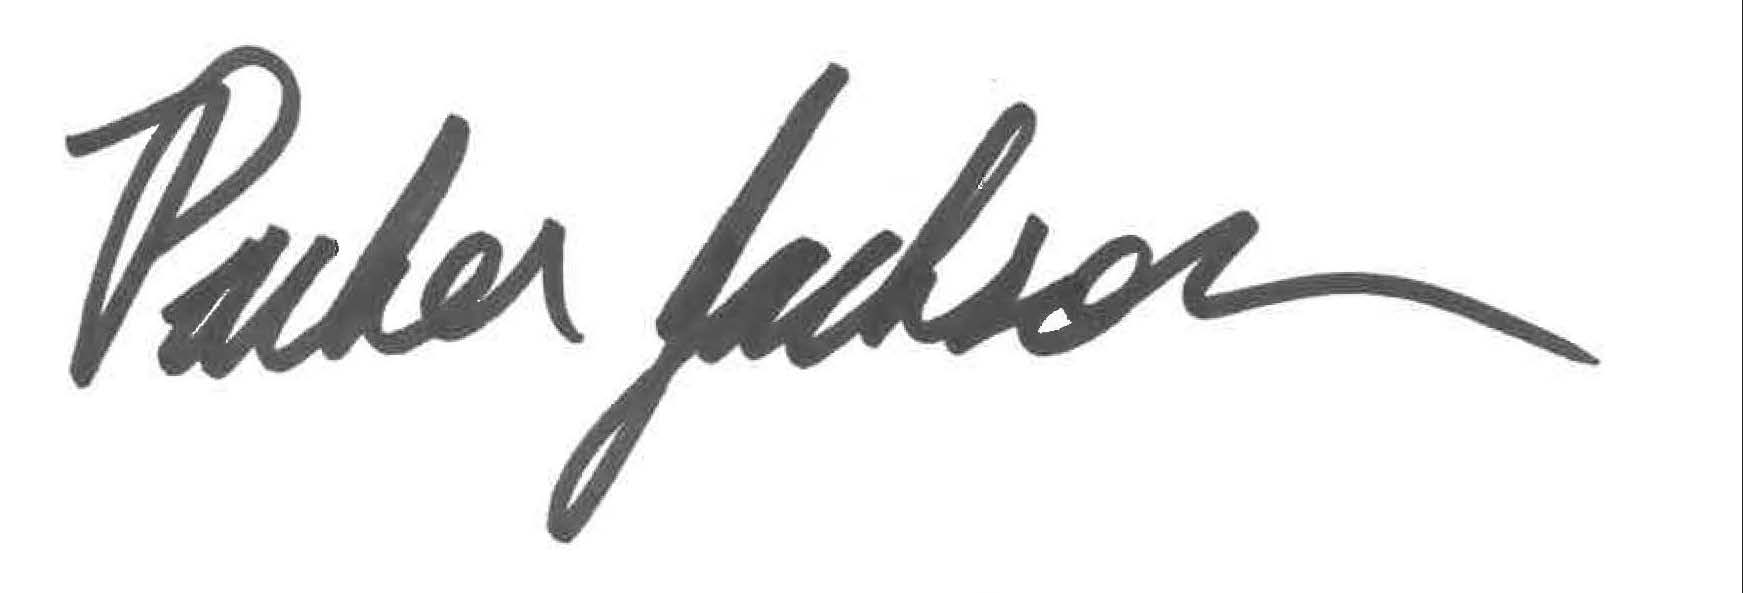 Parker Jackson